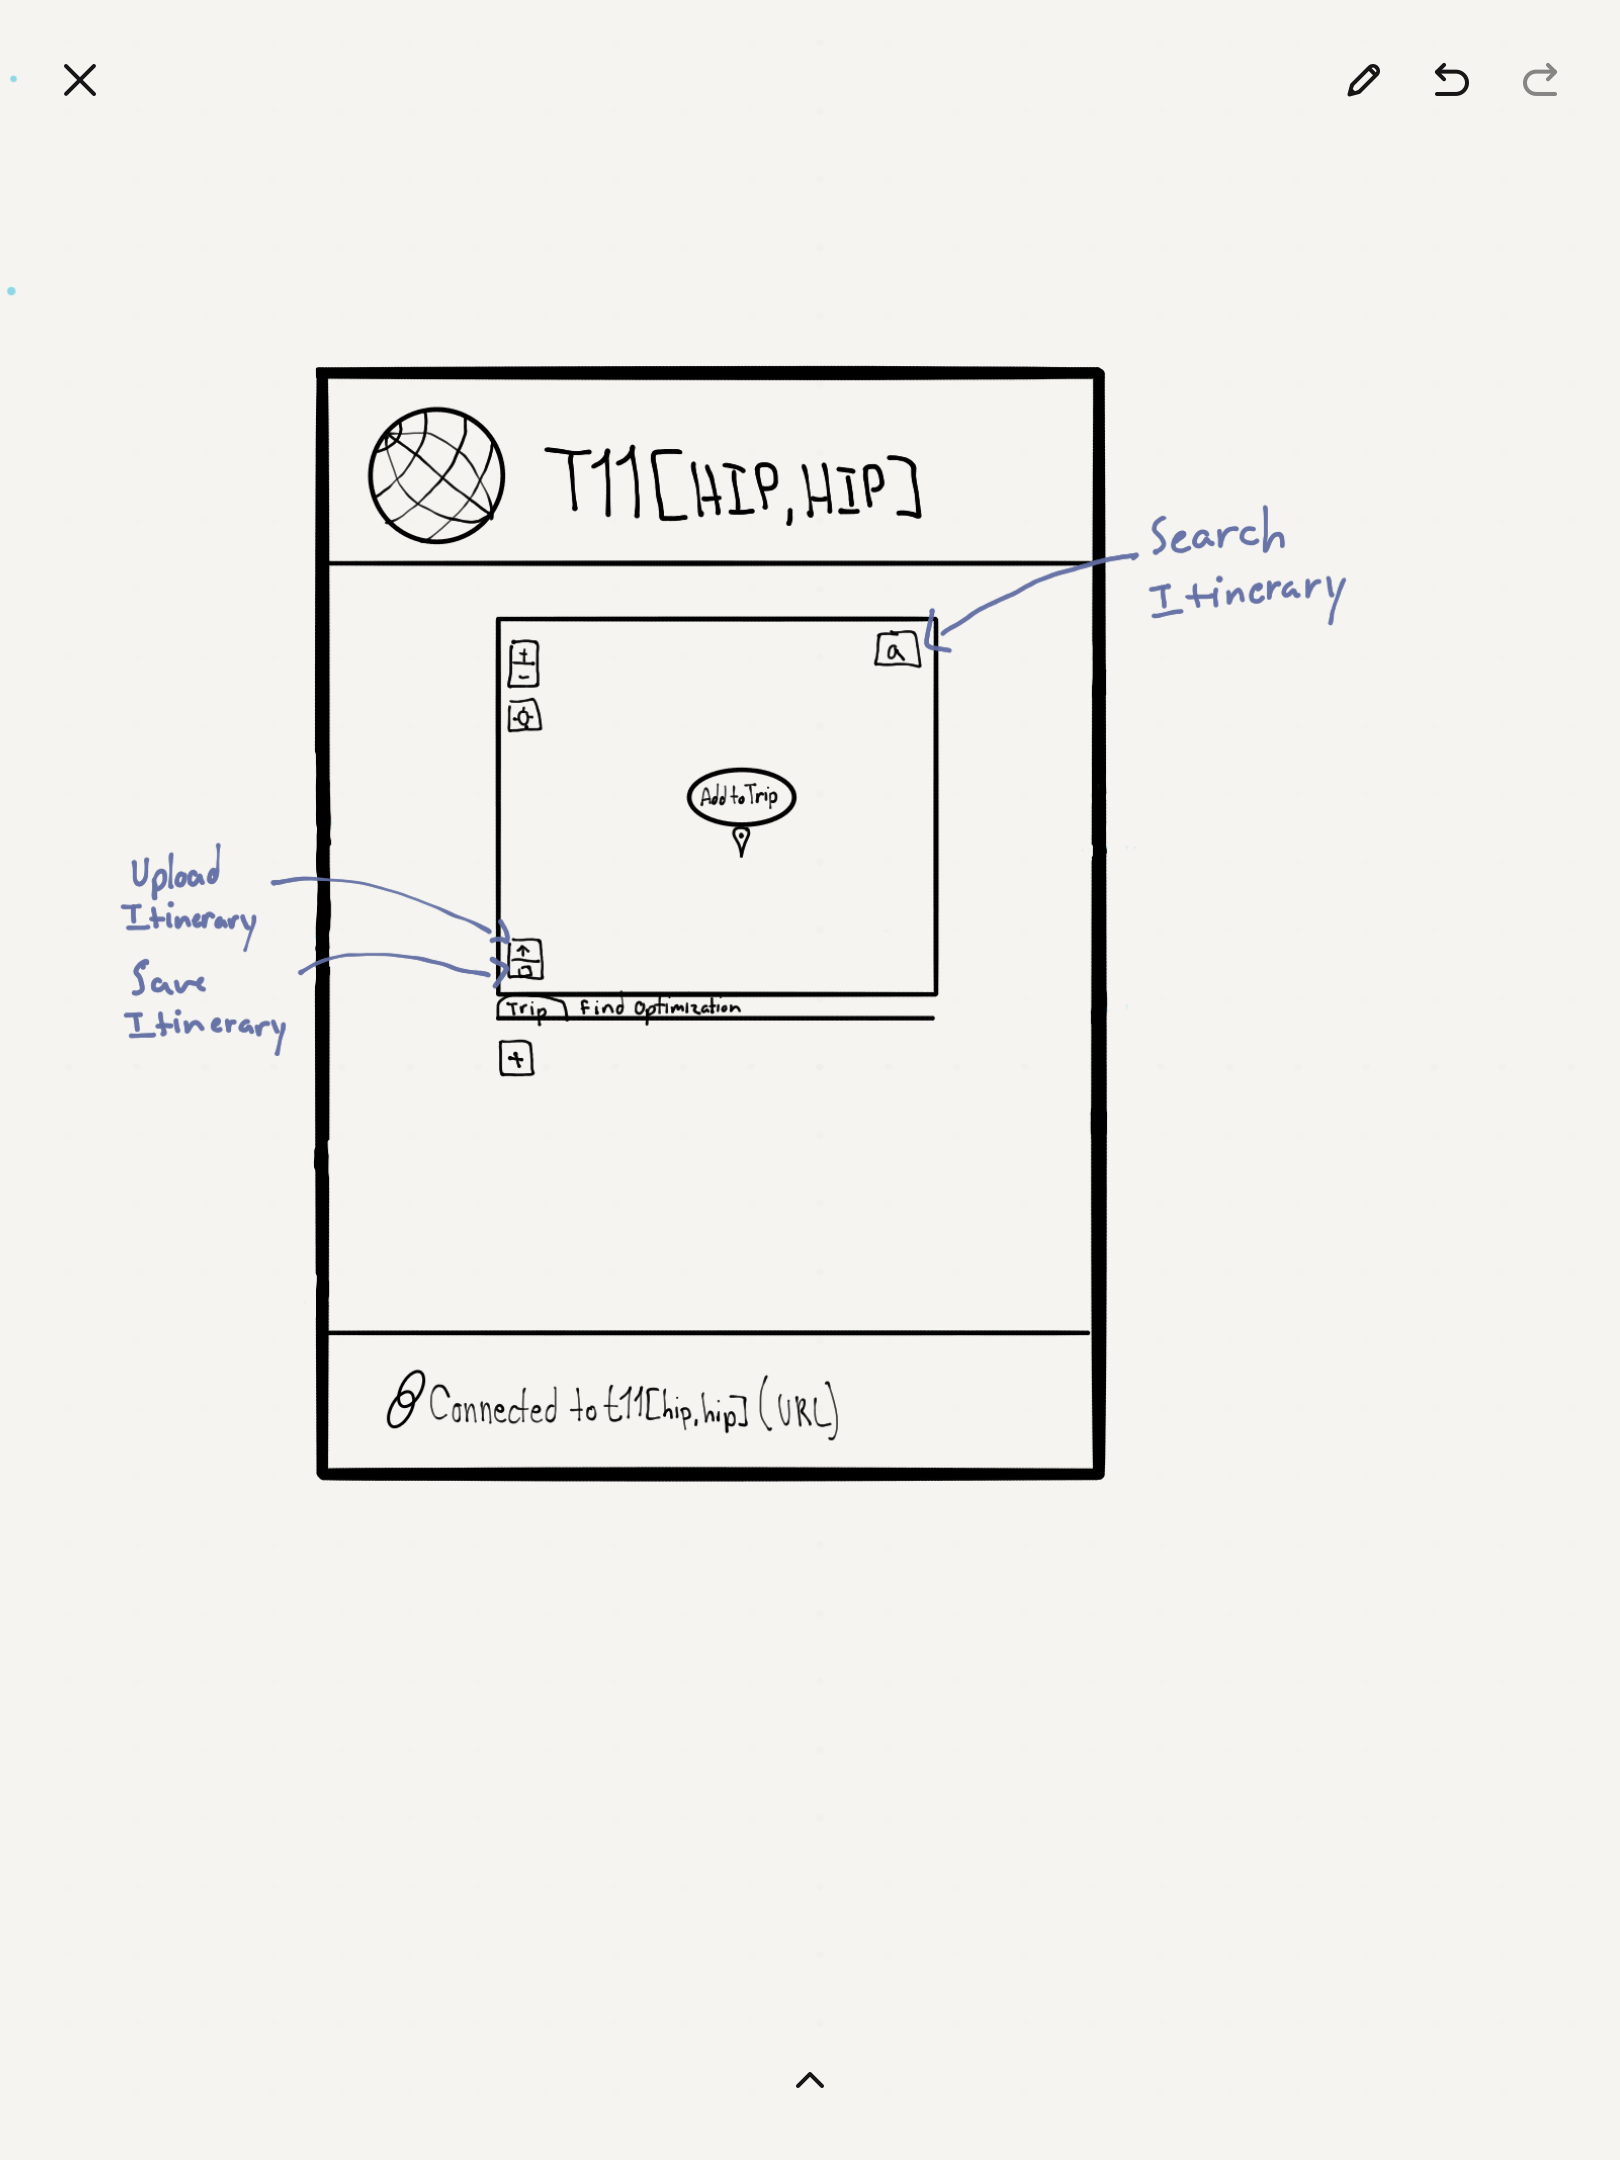 T11[HIP,HIP]
Search
Itinerary
+
a
-
Add to Trip
Upload
Itinerary
Save
Itinerary
Trip Find Optimization
+
Connected to t11[hip,hip] (URL)